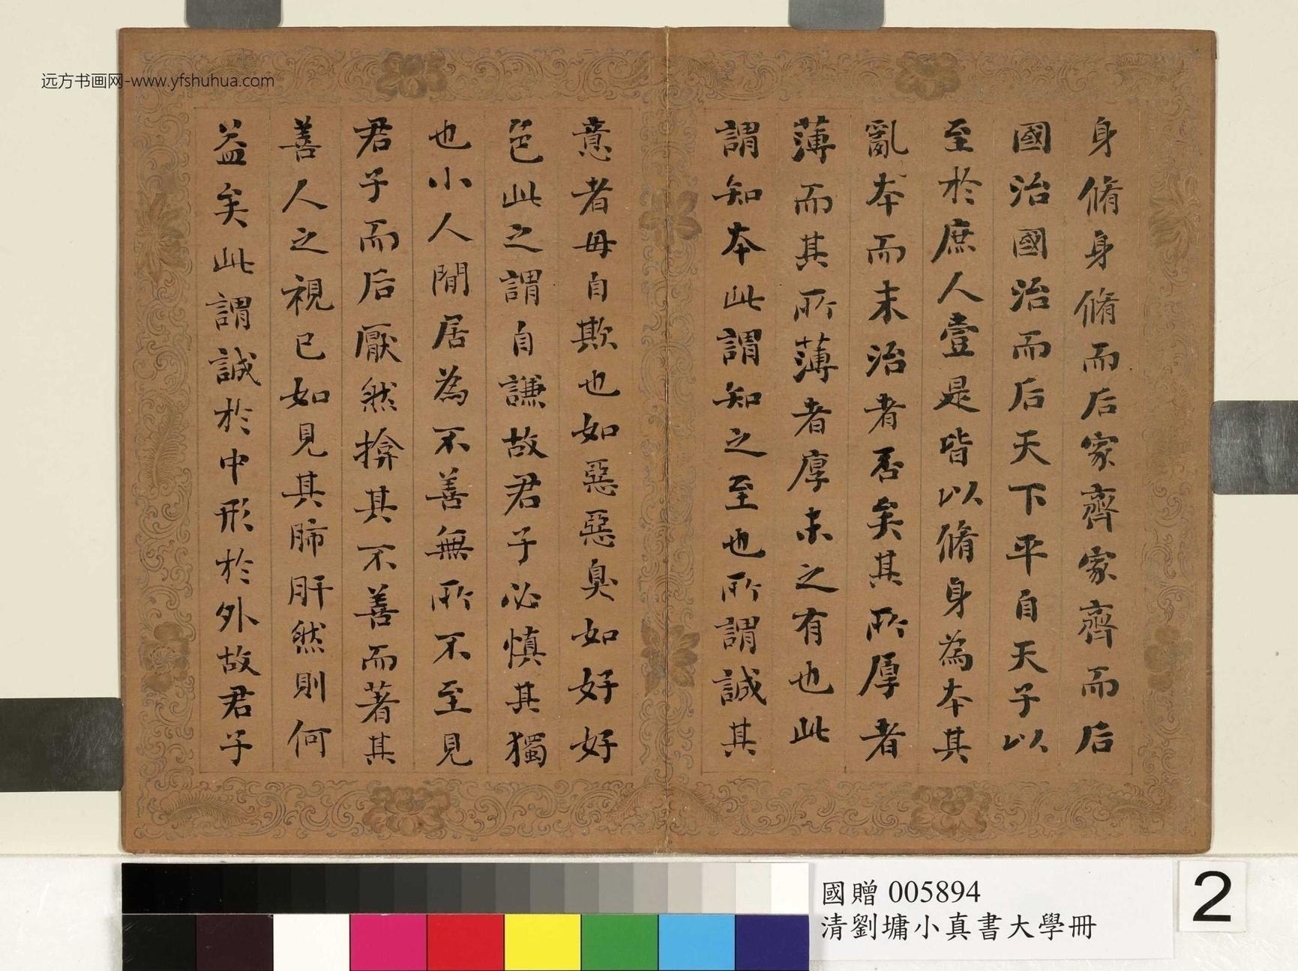 远方书画网-www.yfshuhua.com
身脩身脩而后家齊家齊而后
國治國治而后天下平自天子以
至於庶人壹是皆以脩身為本其
亂本而末治者否矣其所厚者
薄而其所薄者厚未之有也此
謂知本此謂知之至也所謂誠其
意者毋自欺也如惡惡臭如好好
色此之謂自謙故君子必慎其獨
也小人閒居為不善無所不至見
君子而后厭然揜其不善而著其
善人之視己如見其肺肝然則何
益矣此謂誠於中形於外故君子
國贈 005894
清劉墉小真書大學冊
2